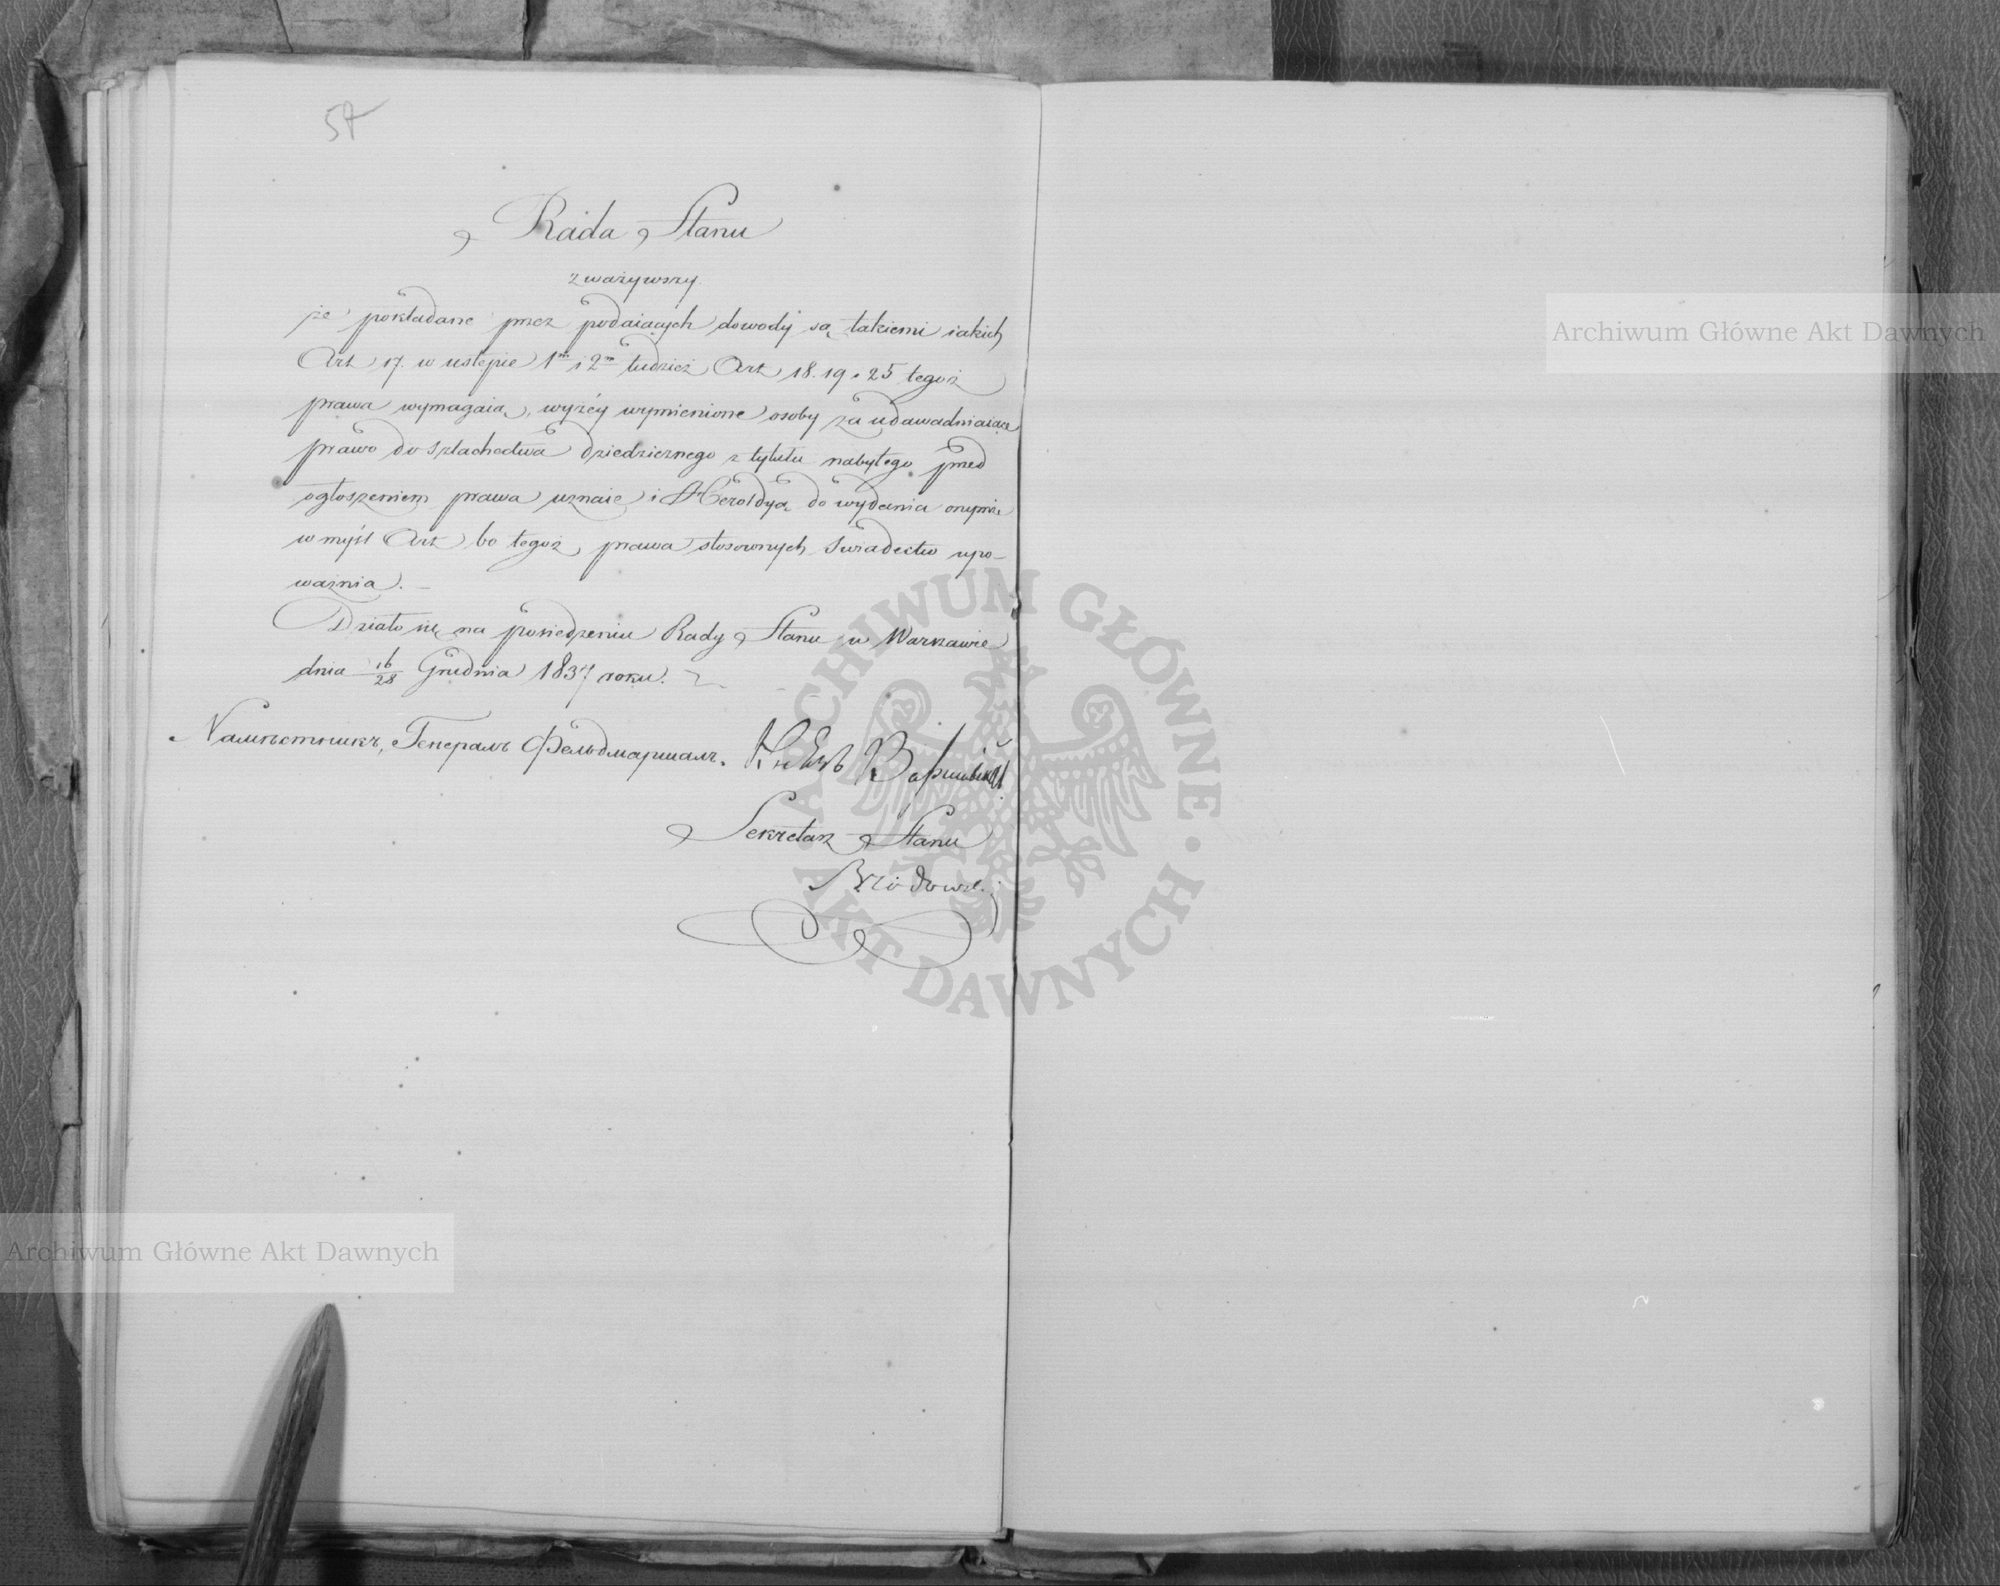 57
Rada Stanu
zważywszy
że pokładane przez podaiących dowody są takiemi iakich
Art 17. w ustępie 1m i 2m tudzież Art 18. 19. 25 tegoż
prawa wymagaią, wyżéy wymienione osoby za udawadniaiące
prawo do szlachectwa dziedzicznego z tytułu nabytego przed
ogłoszeniem prawa uznaie i Heroldyą do wydania onymże
w myśl Art 60 tegoż prawa stosownych świadectw upo-
ważnia. —
Działo się na posiedzeniu Rady Stanu w Warszawie
dnia 16/28 Grudnia 1837 roku.
Намѣстникъ, Генералъ Фельдмаршалъ. Князь Варшавскій
Sekretarz Stanu
Brzozowski
Archiwum Główne Akt Dawnych
Archiwum Główne Akt Dawnych
ARCHIWUM GŁÓWNE · AKT DAWNYCH ·